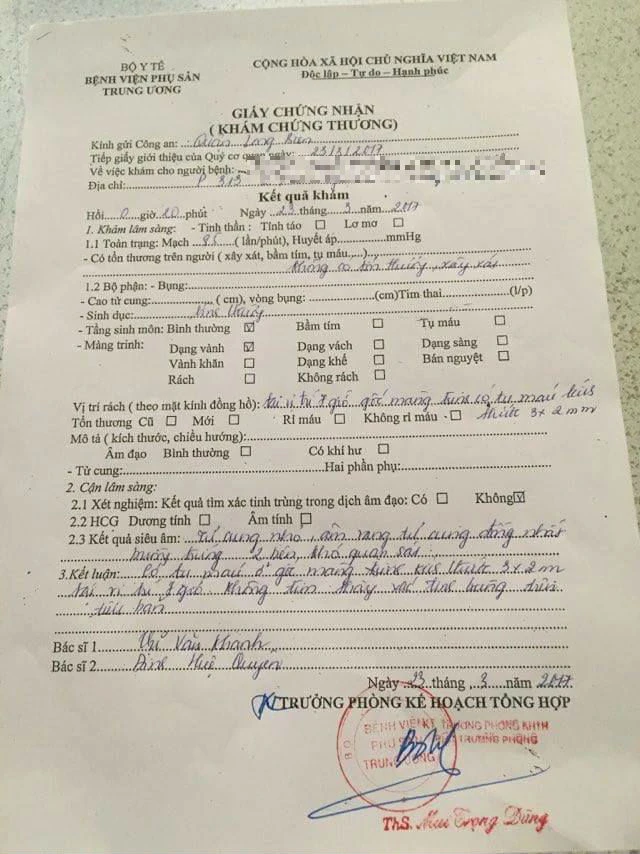 BỘ Y TẾ
BỆNH VIỆN PHỤ SẢN
TRUNG ƯƠNG
CỘNG HÒA XÃ HỘI CHỦ NGHĨA VIỆT NAM
Độc lập – Tự do – Hạnh phúc
GIẤY CHỨNG NHẬN
( KHÁM CHỨNG THƯƠNG)
Kính gửi Công an: Quận Long Biên
Tiếp giấy giới thiệu của Quý cơ quan ngày: 23/3/2017
Về việc khám cho người bệnh:
Địa chỉ: P 313
Kết quả khám
Hồi 0 giờ 20 phút Ngày 23 tháng 3 năm 2017
1. Khám lâm sàng: - Tinh thần: Tỉnh táo Lơ mơ
1.1 Toàn trạng: Mạch 85 ( lần/phút), Huyết áp mmHg
- Có tổn thương trên người ( xây xát, bầm tím, tụ máu,...)
không có tổn thương, xây xát
1.2 Bộ phận: - Bụng:
- Cao tử cung: ( cm), vòng bụng: (cm)Tim thai (l/p)
- Sinh dục:
- Tầng sinh môn: Bình thường Bầm tím Tụ máu
- Màng trinh: Dạng vành Dạng vách Dạng sàng
Vành khăn Dạng khế Bán nguyệt
Rách Không rách
Vị trí rách ( theo mặt kính đồng hồ): tại vị trí 7 giờ gốc màng trinh có tụ máu kích
thước 3 x 2 mm
Tổn thương Cũ Mới Rỉ máu Không rỉ máu
Mô tả ( kích thước, chiều hướng):
Âm đạo Bình thường Có khí hư
- Tử cung: Hai phần phụ:
2. Cận lâm sàng:
2.1 Xét nghiệm: Kết quả tìm xác tinh trùng trong dịch âm đạo: Có Không
2.2 HCG Dương tính Âm tính
2.3 Kết quả siêu âm: Tử cung nhỏ, âm vang tử cung đồng nhất
buồng trứng 2 bên khó quan sát
3.Kết luận: Có tụ máu ở gốc màng trinh kích thước 3 x 2 m
tại vị trí 7 giờ. Không tìm thấy xác tinh trùng trên
tiêu bản
Bác sĩ 1 Vũ Văn Khanh
Bác sĩ 2 Đinh Huệ Quyên
Ngày 23 tháng 3 năm 2017
TRƯỞNG PHÒNG KẾ HOẠCH TỔNG HỢP
BỆNH VIỆN
PHỤ SẢN
TRUNG ƯƠNG
KT. TRƯỞNG PHÒNG KHTH
TRƯỞNG PHÒNG
ThS. Mai Trọng Dũng